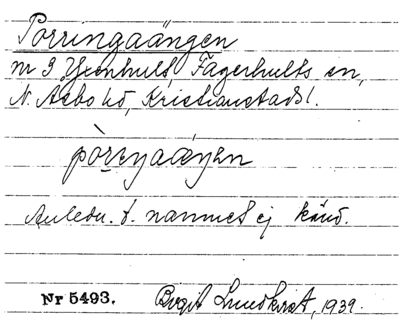 Porringaängen
nr 9 Yxenhult, Fagerhults sn,
N. Åsbo hd, Kristianstads l.
Anledn. t. namnet ej känd.
Nr 5493. Birgit Lundkvist, 1939.